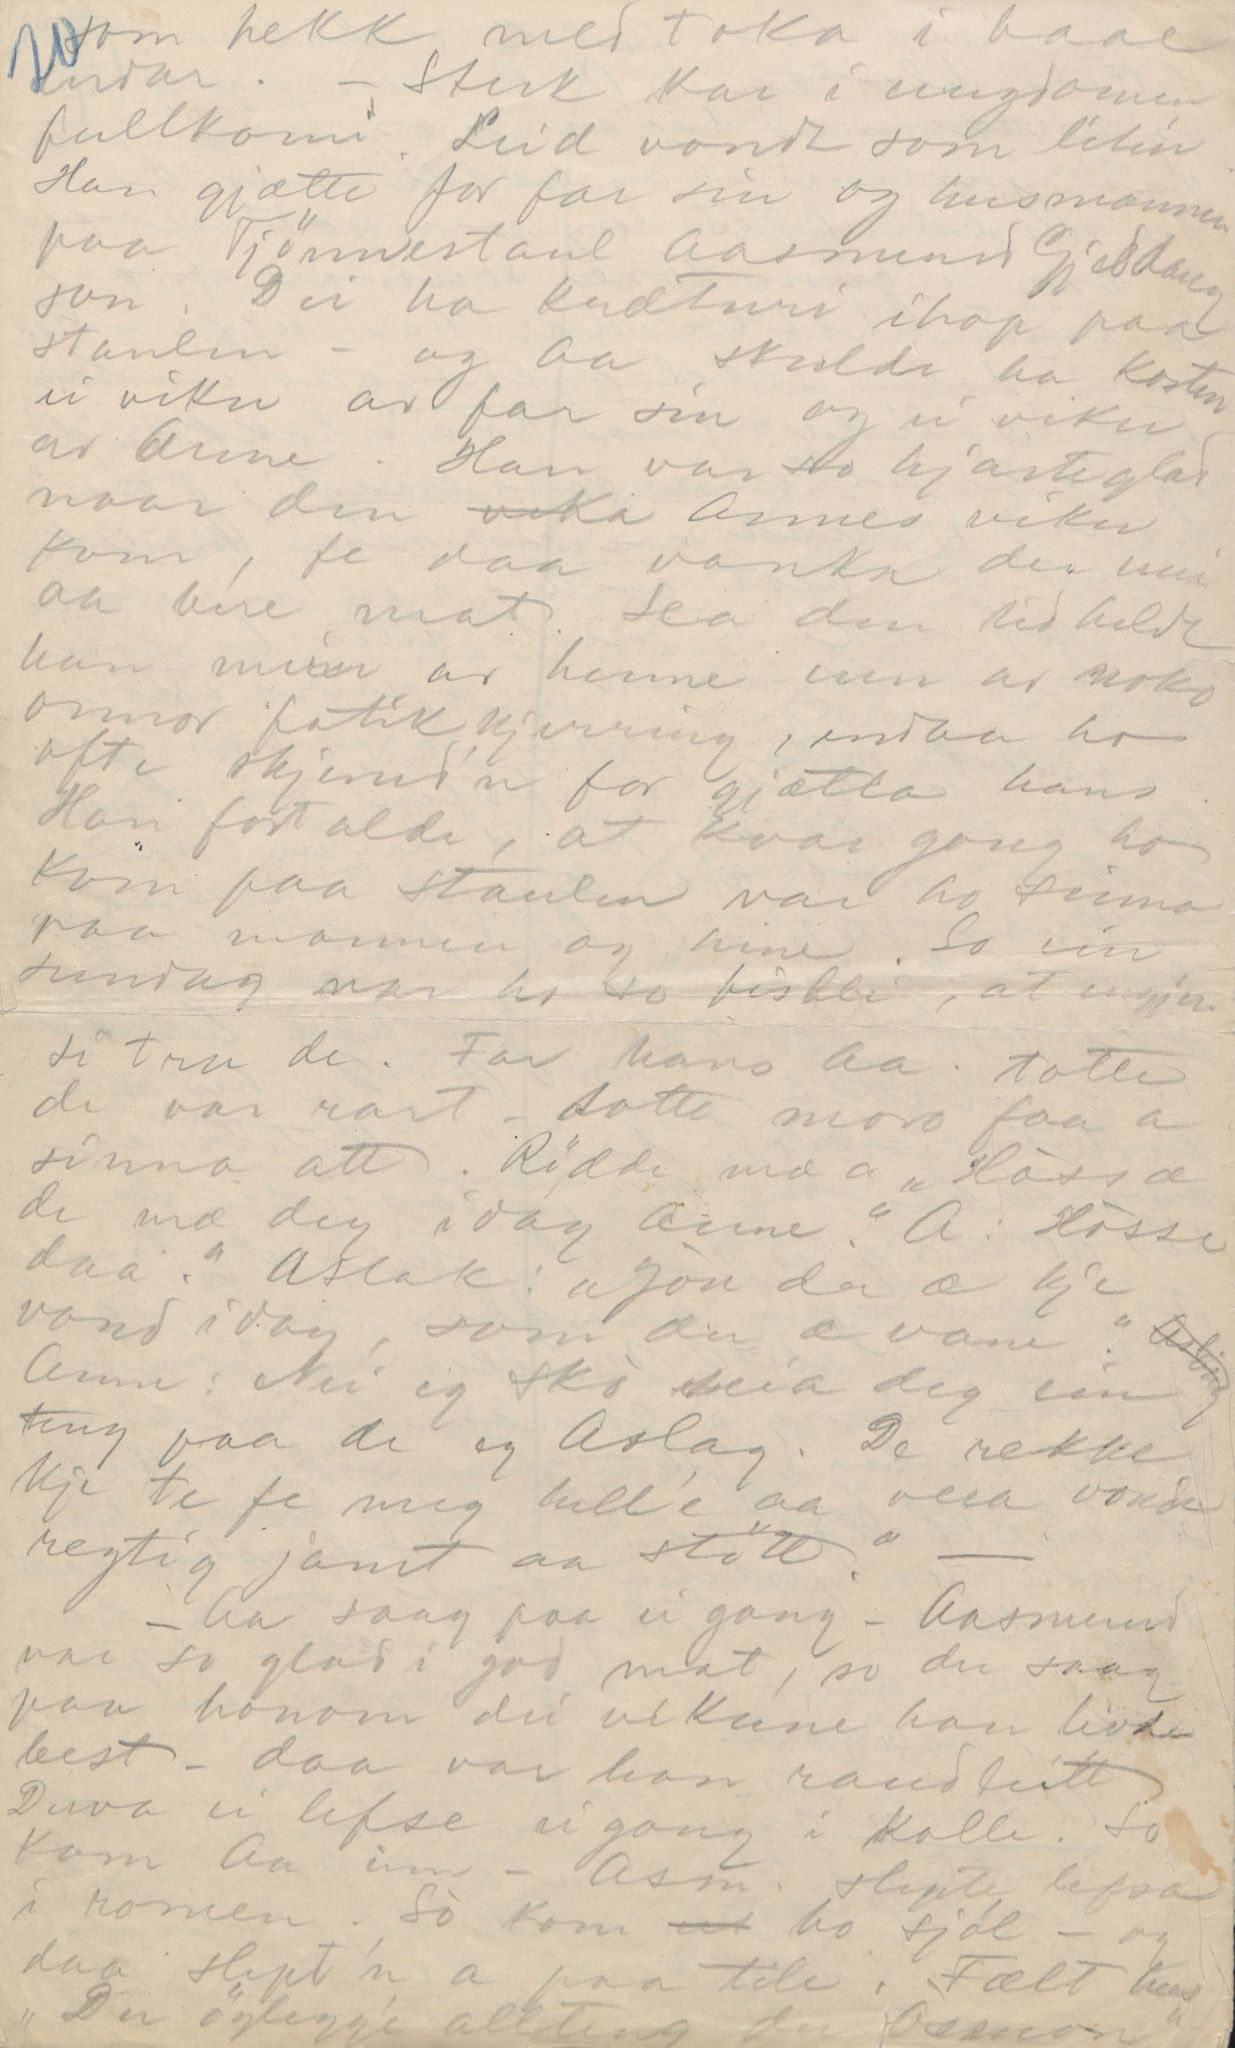 20
som hekk med toka i baae
endar. – Sterk kar i ungdomen
fullkomi. Leid vondt som liten
Han gjætte for far sin og husmannen
paa Tjönnestaul Aasmund Gjeddaug
son. Dei ha krøturi ihop paa
staulen – og Aa skulde ha kosten
ei viku av far sin og ei viku
av Anne. Han var so hjarteglad
naar den vika Annes viku
kom, fe daa vanka der mei
aa bere mat. Sea den tid heldt
han meir av henne enn av noko
onnor fatikkjerring, endaa ho
ofte skjemd'n for gjætla hans.
Han fortalde, at kvar gong ho
kom paa staulen var ho sinna
paa mannen og hine. So ein
sundag var ho so bisleli, at ingjen
si tru de. Far hans Aa. totte
de var rart – totte moro faa a
sinna att. Rödde mæ a „Hössæ
de mæ deg idag Anne." A: Hösse
daa." Aslak: „Jön du æ kje
vond idag, som du æ vane." Aslaug
Anne: Nei eg sko seia deg ein
ting paa de eg Aslag. De rekke
kje te fe meg hell'e aa vera vonde
regtig jamt aa stött." —
– Aa saag paa ei gong – Aasmund
var so glad i god mat, so du saag
paa honom dei vikune han livde
best – daa var han raudleitt
Duva ei lefse eigong i kolle. So
kom Aa inn – Asm. slepte lefsa
i romen. So kom ut ho sjøl – og
daa slept'n a paa tile. Fælt hus
„Du öylegge allting du Osmon"